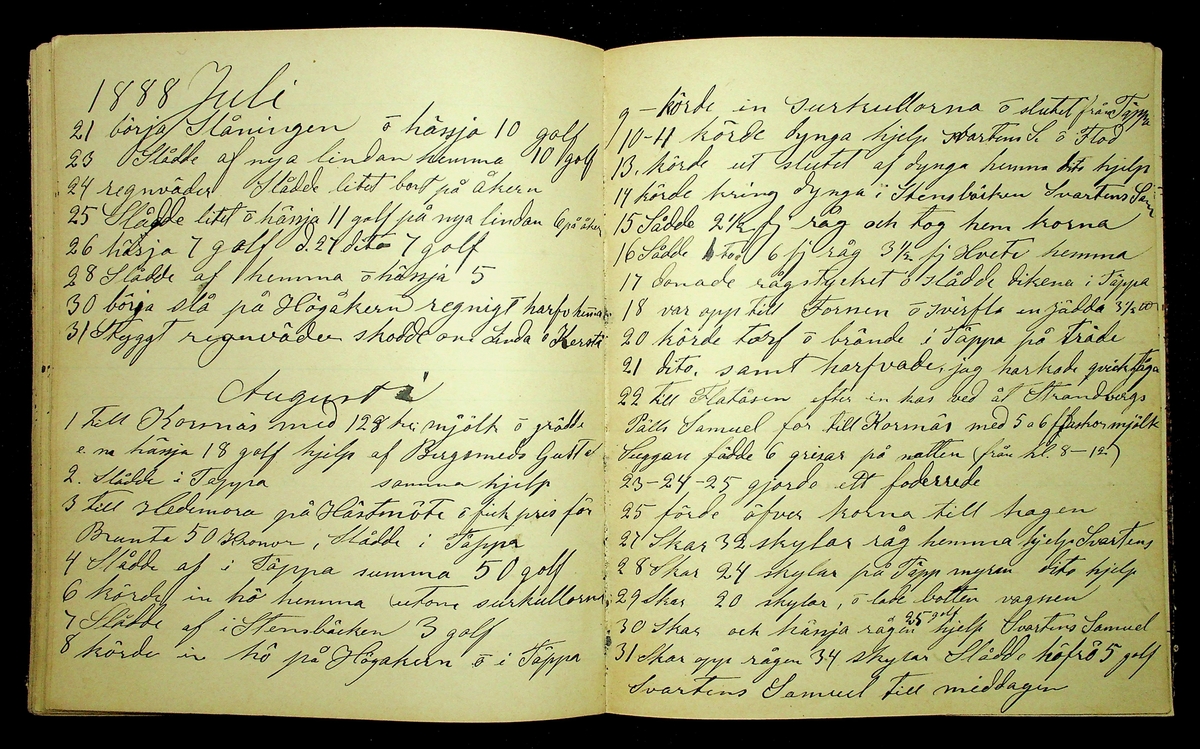 1888 Juli
21 börja Slåningen ö hässja 10 golf
23 Slådde af nya lindan hemma 10 golf
24 regnväder Slådde litet bort på åkern
25 Slådde litet ö hässja 11 golf på nya lindan 6 på åker
26 hässja 7 golf d. 27 dito 7 golf
28 Slådde af hemma ö hässja 5
30 börja slå på Högåkern regnigt harfv hemma
31 Styggt regnväder skodde om Linda ö Kersti
Augusti
1 till Kornäs med 128 mjölk ö grädde
e. m hässja 18 golf hjelp af Bergsmeds Gustaf
2. Slådde i Täppa samma hjelp
3 till Hedemora på Hästmöte ö fick pris för
Brunta 50 Kronor, Slådde i Täppa
4 Slådde af i Täppa summa 50 golf
6 körde in hö hemma utom surkullorna
7 Slådde af i Stensbäcken 3 golf
8 körde in hö på Högåkern ö i Täppa
9 - körde in surkullorna ö slutet från Täppa
10-11 körde dynga hjelp Svartens S. ö Flod
13. körde ut slutet af dynga hemma dito hjelp
14 körde kring dynga i Stensbäcken Svartens Sam
15 Sådde 2 1/2 fj råg och tog hem korna
16 Sådde 6 fj råg 3 1/2 fj Hvete hemma
17 Donade rågstycket ö slådde dikena i Täppa
18 var opp till Fornen ö en jädda 3 1/2
20 körde torf ö brände i Täppa på träde
21 dito. samt harfvade, jag harkade
22 till Flatåsen efter en kas ved åt Strandbergs
Pålls Samuel for till Kornäs med 5 a 6 flaskor mjölk
Suggan födde 6 grisar på natten (från kl. 8-12)
23-24-25 gjorde ett foderrede
25 förde öfver korna till hagen
27 Skar 32 skylar råg hemma hjelp Svartens
28 Skar 24 skylar på Täpp myran dito hjelp
29 Skar 20 skylar, ö lade botten vagnen
30 Skar och hässja rågen 25 golf hjelp Svartens Samuel
31 Skar opp rågen 34 skylar Slådde höfrö 5 golf
Svartens Samuel till middagen